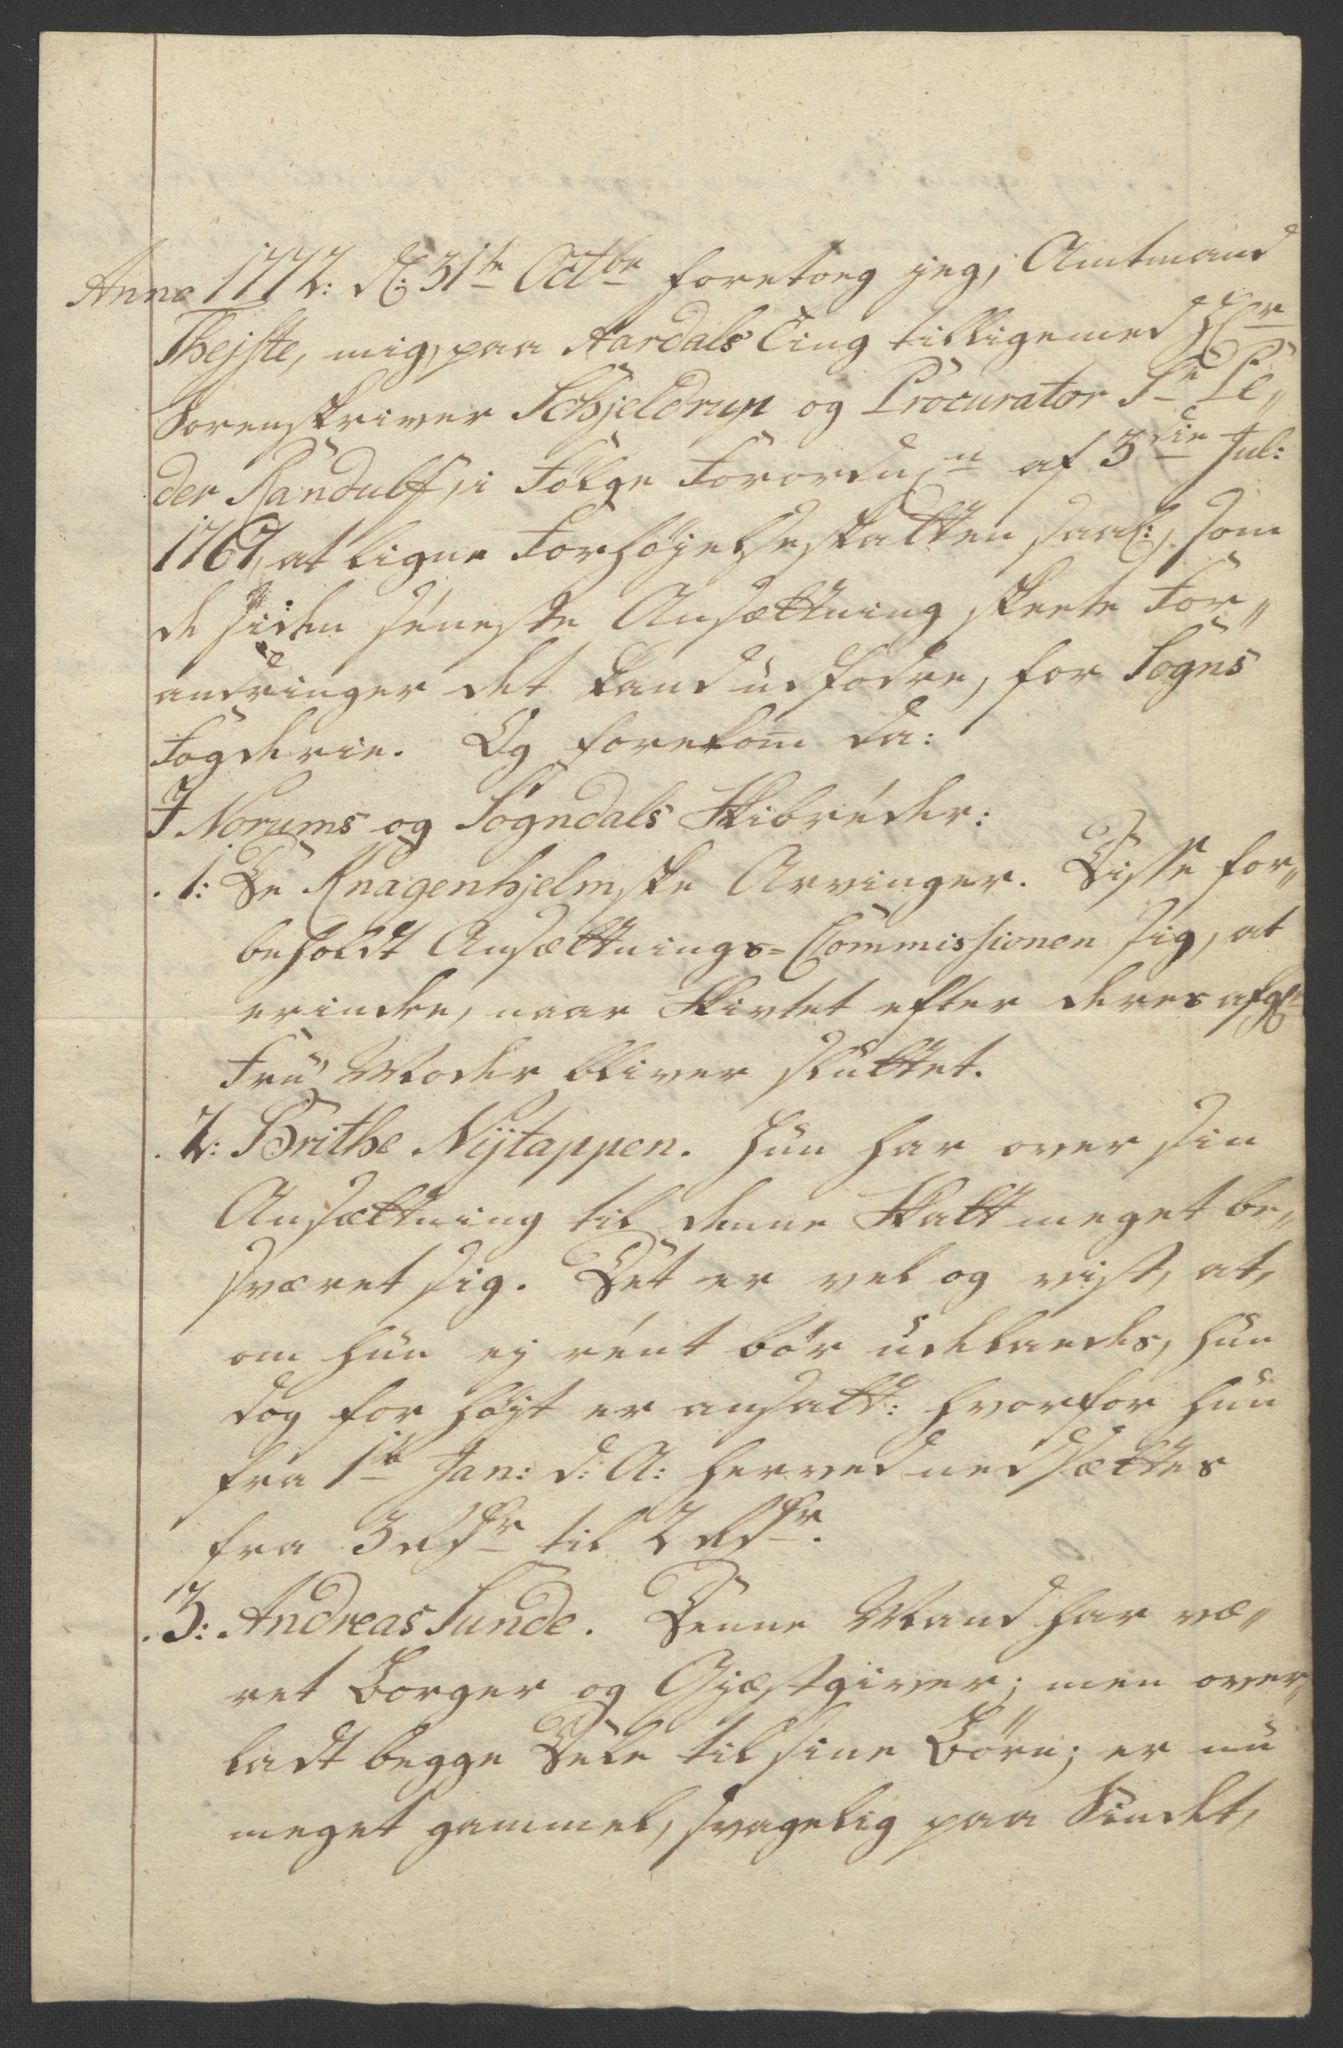 Anno 1772: d: 31te Octbr foretoeg jeg, Amtmand
Thejste, mig, paa Aardals Ting tilligemed Hr
Sorenskriver Schjeldrup og Procurator Sr Pe„
der Randulff, i Følge Forordn: af 3die Jul:
1767, at ligne Forhøjelseskatten saal:, som
de siden séneste Ansættning skeete For„
andringer det kand udfodre, for Sogns
Fogderie. Og forekom da:
I Norums og Sogndals Skibréder:
.1: De Knagenhjelmske Arvinger. Disse for„
beholdt Ansættnings=Commissionen sig, at
erindre, naar Skiftet efter deres afgl:
Frü Moder bliver sluttet.
.2: Brithe Nÿtappen. Hün har over sin
Ansættning til denne Skatt meget be„
sværet sig. Det er vel og vist, at,
om hün ej rént bør üdelaedes, hun
dog for højt er ansatt: hvorfor hün
fra 1te Jan: d: A: herved nedsættes
fra 3 rdr til 2 rdr.
.3: Andreas Sunde. Denne Mand har væ„
ret Borger og Gjæstgiver; men over„
ladt begge Dele til sine Børn; er nu
meget gammel, svagelig paa Sindet,